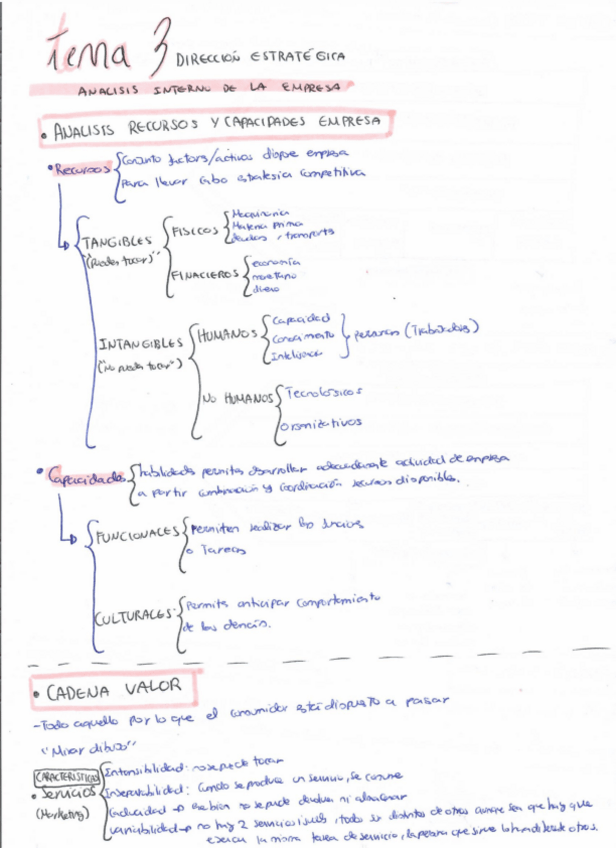 Tema 3 DIRECCIÓN ESTRATÉGICA
ANALISIS INTERNO DE LA EMPRESA
• ANALISIS RECURSOS Y CAPACIDADES EMPRESA
• Recursos factors/activos dispone empresa
Para llevar cabo estrategia competitiva
TANGIBLES
("Puedes tocar")
FISICOS
Maquinaria
Materia prima
, transports
FINACIEROS
economía
monetario
dinero
INTANGIBLES
("No puedes tocar")
HUMANOS
Capacidad
Conocimiento
Inteligencia
personas (Trabajadores)
NO HUMANOS
Tecnológicos
Organizativos
• Capacidades habilidades permiten desarrollar adecuadamente actividad de empresa
a partir combinación y coordinación recursos disponibles.
FUNCIONALES
Permiten realizar las
o Tareas
CULTURALES:
Permits anticipar comportamiento
de los
• CADENA VALOR
- Todo aquello por lo que el consumidor está dispuesto a pagar
"Mirar dibujo"
CARACTERISTICAS
• Servicios
(Marketing)
Intangibilidad: no se puede tocar
Inseparabilidad: Cuando se produce un servicio, se consume
Caducidad → no se puede devolver ni almacenar
Variabilidad → no hay 2 servicios iguales, todo es distinto de otros aunque sea que hay que
la misma tarea de servicio, la persona que sirve lo hará de otros.